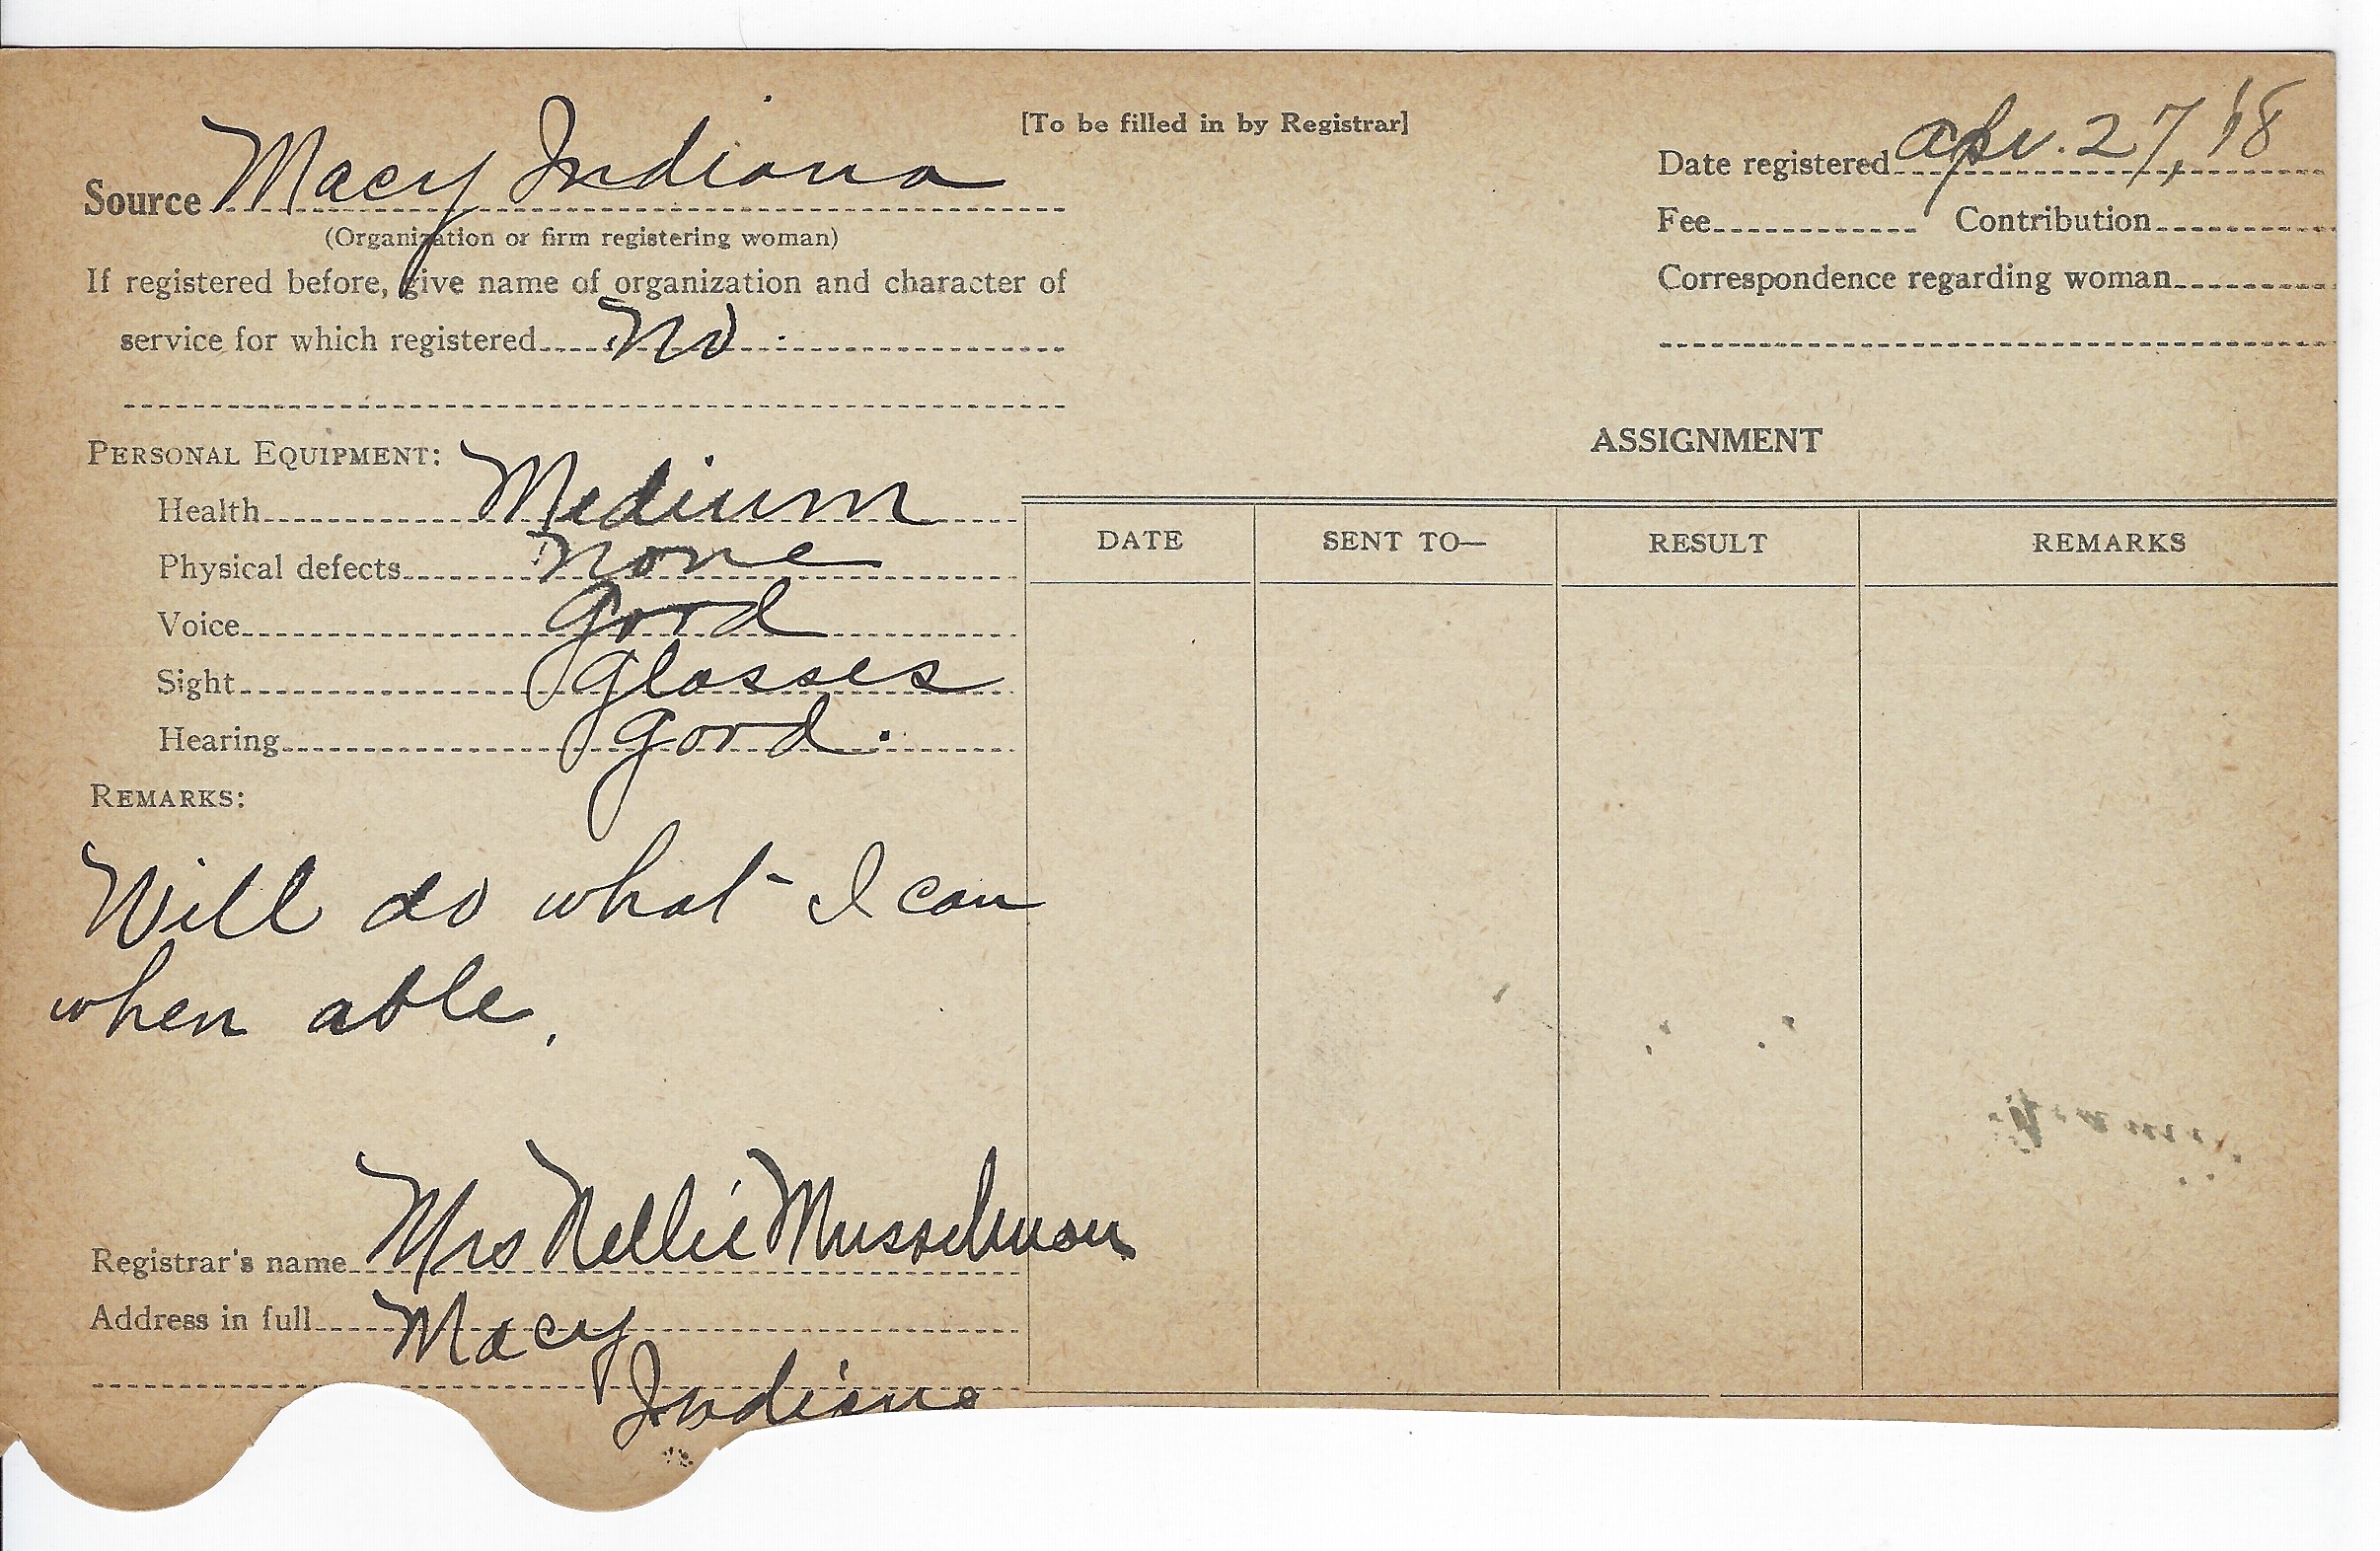 [To be filled in by Registrar]
Source Macy Indiana
(Organization or firm registering woman)
If registered before, give name of organization and character of
service for which registered No
Date registered Apr. 27, '18
Fee Contribution
Correspondence regarding woman
PERSONAL EQUIPMENT:
Health Medium
Physical defects None
Voice Good
Sight Glasses
Hearing Good.
REMARKS:
Will do what I can
when able.
Registrar's name Mrs Nellie Musselman
Address in full Macy
Indiana
ASSIGNMENT
DATE SENT TO— RESULT REMARKS